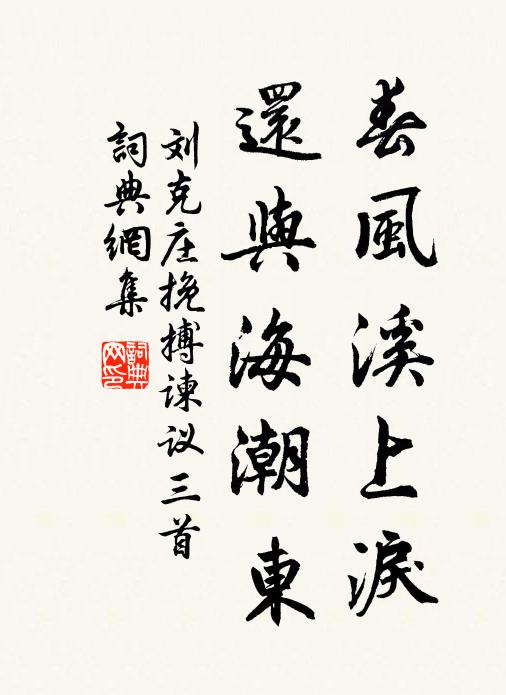 春風溪上淚
還與海潮東
刘克庄挽搏谏议三首
詞典網集
詞典
网印